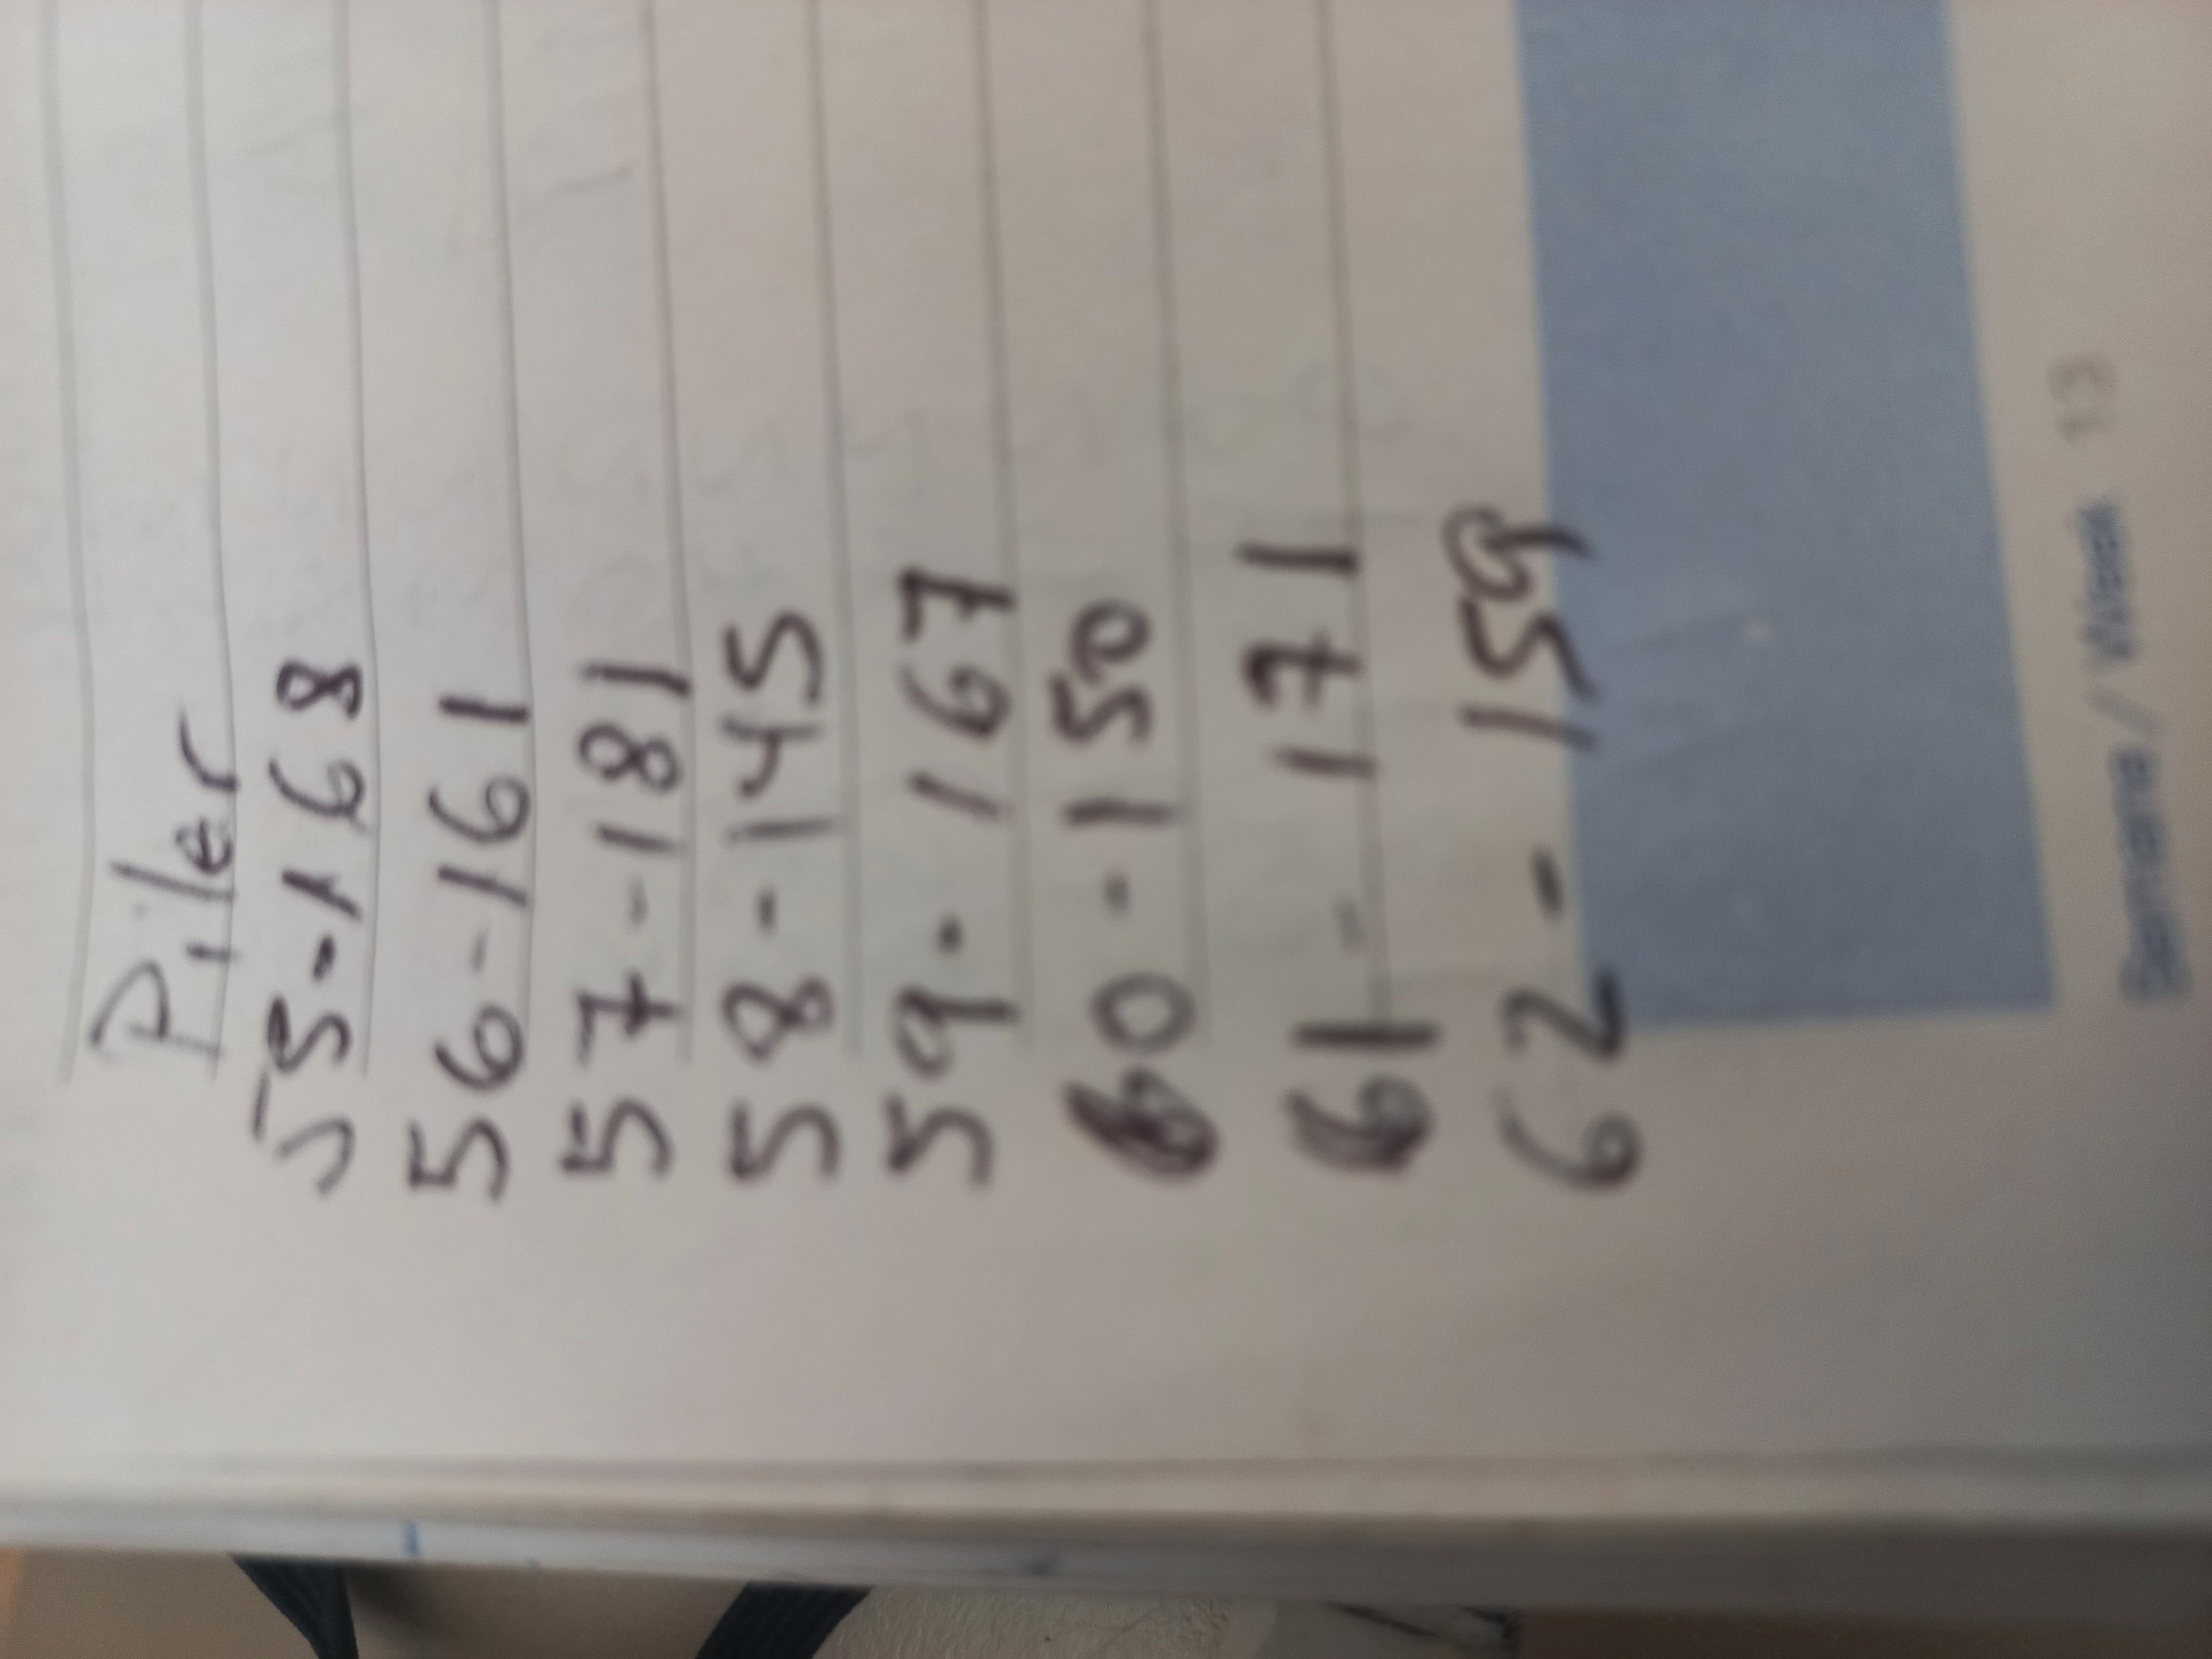 Piler
55-168
56-161
57-181
58-145
59-167
60-150
61-171
62-159
Semana / Week 13